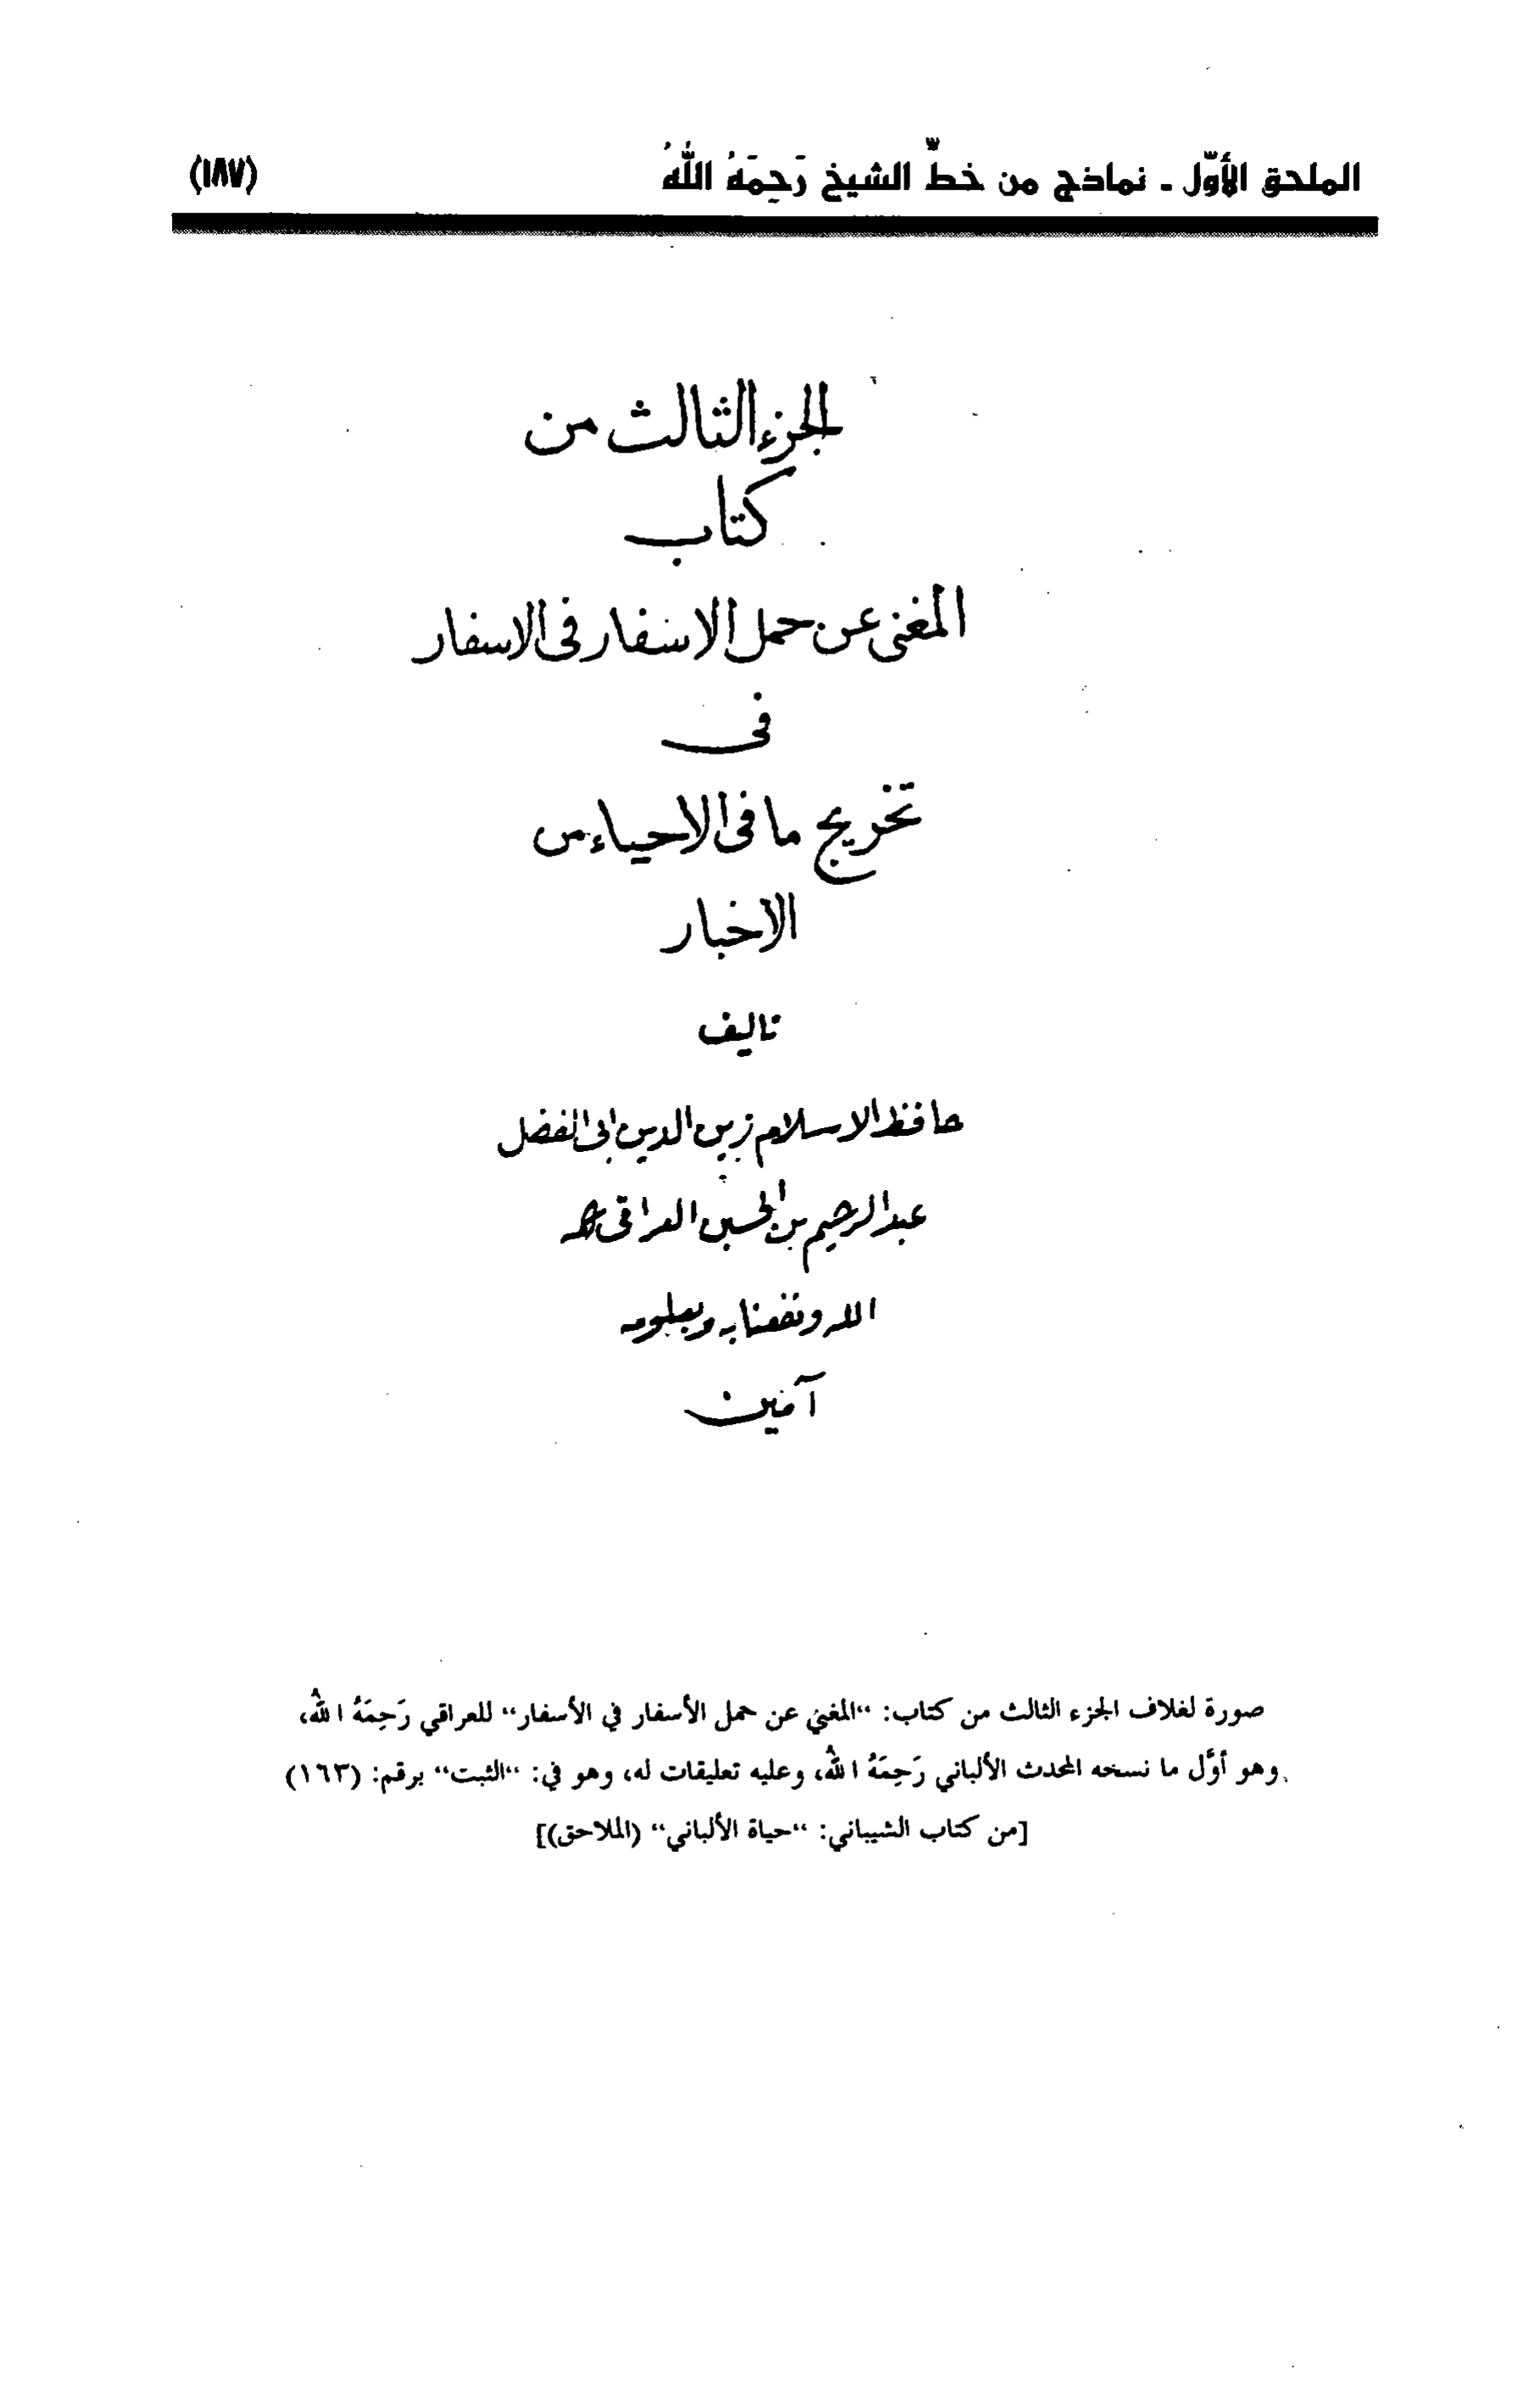 الملحق الأوّل ـ نماذج من خطِّ الشيخ رَحِمَهُ اللهُ (١٨٧)
الجزء الثالث من
كتاب
المغنى عن حمل الاسفار فى الاسفار
فى
تخريج ما فى الاحياء من
الاخبار
تاليف
حافظ الاسلام زين الدين ابى الفضل
عبد الرحيم بن الحسين العراقى
الله ونفعنا به وبعلومه
آمين
صورة لغلاف الجزء الثالث من كتاب: "المغني عن حمل الأسفار في الأسفار" للعراقي رَحِمَهُ اللهُ،
وهو أوَّل ما نسخه المحدث الألباني رَحِمَهُ اللهُ، وعليه تعليقات له، وهو في: "الثبت" برقم: (١٦٣)
[من كتاب الشيباني: "حياة الألباني" (الملاحق)]